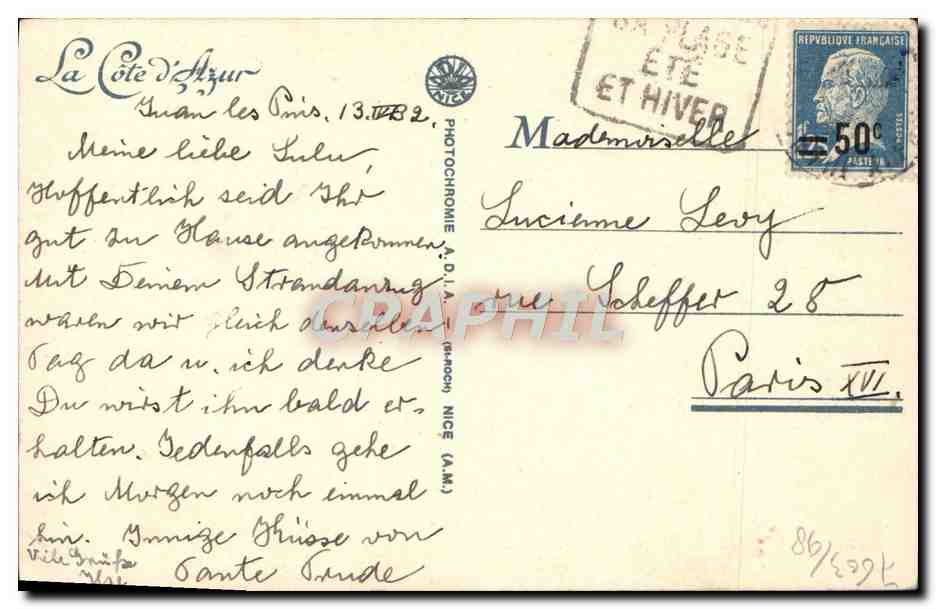 La Côte d'Azur
Juan les Pins. 13.
Meine liebe Lulu,
Hoffentlich seid Ihr
gut zu Hause angekommen.
Mit Deinem Strandanzug
waren wir gleich denselben
Tag da u. ich denke
Du wirst ihn bald er-
halten. Jedenfalls gehe
ich Morgen noch einmal
hin. Innige Küsse von
Tante Trude
Viele Grüße
NICE
PHOTOCHROMIE A.D.I.A. (St-ROCH) NICE (A.M.)
PLAGE
ETE
ET HIVER
REPUBLIQUE FRANÇAISE
POSTES
50c
PASTEUR
Mademoiselle
Lucienne Levy
rue Scheffer 28
Paris XVI.
CRAPHIL